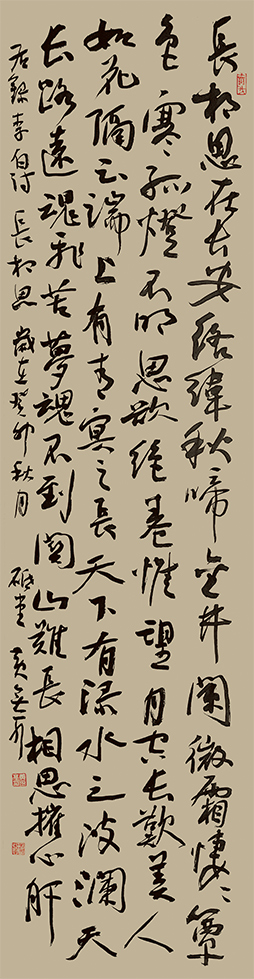 長相思在長安絡緯秋啼金井闌微霜悽〻簟
色寒孤燈不明思欲絕卷惟望月空長歎美人
如花隔雲端上有青冥之長天下有淥水之波瀾天
長路遠魂飛苦夢魂不到關山難長相思摧心肝
右錄李白詩長相思歲在癸卯秋月